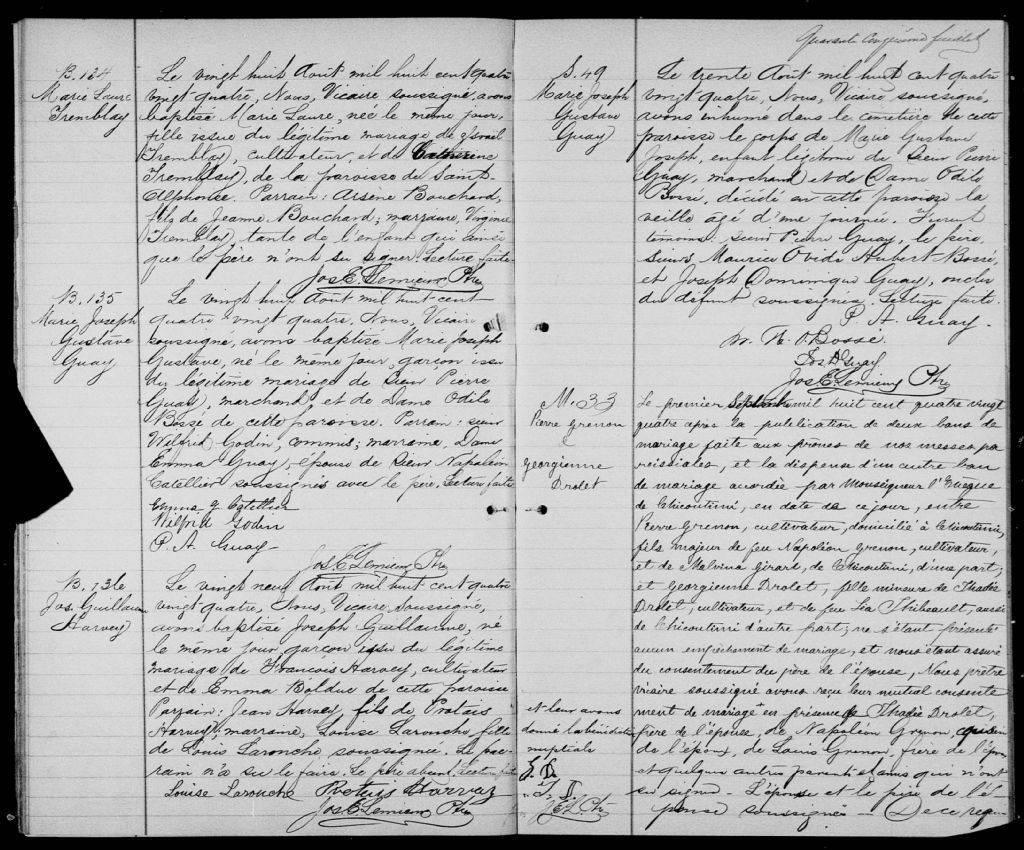 B. 134
Marie Laure
Tremblay
Le vingt huit Août mil huit cent quatre
vingt quatre, Nous, Vicaire soussigné, avons
baptisé Marie Laure, née le même jour,
fille issue du légitime mariage de Israël
Tremblay, cultivateur, et de Catherine
Tremblay, de la paroisse de Saint-
Alphonse. Parrain: Arsène Bouchard,
fils de Jeanne Bouchard; marraine, Virginie
Tremblay, tante de l'enfant qui ainsi
que le père n'ont su signer. Lecture faite
Jos E Lemieux Ptre
B. 135
Marie Joseph
Gustave
Guay
Le vingt huit Août mil huit cent
quatre vingt quatre, Nous, Vicaire
soussigné, avons baptisé Marie Joseph
Gustave, né le même jour, garçon issu
du légitime mariage de Sieur Pierre
Guay, marchand et de Dame Odile
Bossé de cette paroisse. Parrain: sieur
Wilfrid Godin, commis; marraine, Dame
Emma Guay, épouse de Sieur Napoléon
Catellier soussignés avec le père. Lecture faite
Emma G. Catellier
Wilfrid Godin
P. A. Guay
Jos E Lemieux Ptre
B. 136
Jos. Guillaume
Harvey
Le vingt neuf Août mil huit cent quatre
vingt quatre, Nous, Vicaire soussigné,
avons baptisé Joseph Guillaume, né
le même jour garçon issu du légitime
mariage de François Harvey, cultivateur
et de Emma Bolduc de cette paroisse
Parrain: Jean Harvey, fils de
Harvey; marraine, Louise Larouche fille
de Louis Larouche soussignée. Le par-
rain n'a su le faire. Le père absent, Lecture faite
Louise Larouche Harvay
Jos E Lemieux Ptre
Quarante onzième feuillet
S. 49
Marie Joseph
Gustave
Guay
Le trente Août mil huit cent quatre
vingt quatre, Nous, Vicaire soussigné,
avons inhumé dans le cimetière de cette
paroisse le corps de Marie Gustave
Joseph, enfant légitime de Sieur Pierre
Guay, marchand et de Dame Odile
Bossé, décédé en cette paroisse la
veille âgé d'une journée. Furent
témoins: sieur Pierre Guay, le père,
sieurs Maurice Ovide Hubert Bossé,
et Joseph Dominique Guay, oncles
du défunt soussignés. Lecture faite.
P. A. Guay.
M. H. O. Bossé
Jos D Guay
Jos E Lemieux Ptre
M. 33
Pierre Grenon
&
Georgienne
Drolet
Le premier Septembre mil huit cent quatre vingt
quatre après la publication de deux bans de
mariage faite aux prônes de nos messes pa
roissiales, et la dispense d'un autre ban
de mariage accordée par Monseigneur l'Evêque
de Chicoutimi, en date de ce jour, entre
Pierre Grenon, cultivateur, domicilié à Chicoutimi,
fils majeur de feu Napoléon Grenon, cultivateur,
et de Malvina Girard, de Chicoutimi, d'une part;
et Georgienne Drolet, fille mineure de Thadée
Drolet, cultivateur, et de feu Léa Thibeault, aussi
de Chicoutimi d'autre part; ne s'étant présenté
aucun empêchement de mariage, et nous étant assuré
du consentement du père de l'épouse, Nous prêtre
vicaire soussigné avons reçu leur mutuel consente
ment de mariage en présence de Thadée Drolet,
père de l'épouse, de Napoléon Grenon,
de l'époux, de Louis Grenon, frère de l'époux
et quelques autres parents et amis qui n'ont
su signer. L'épouse et le père de l'é-
pouse soussignés — De ce requ-
et leur avons
donné la bénédiction
nuptiale
G. D.
T. D.
J E L. Ptre